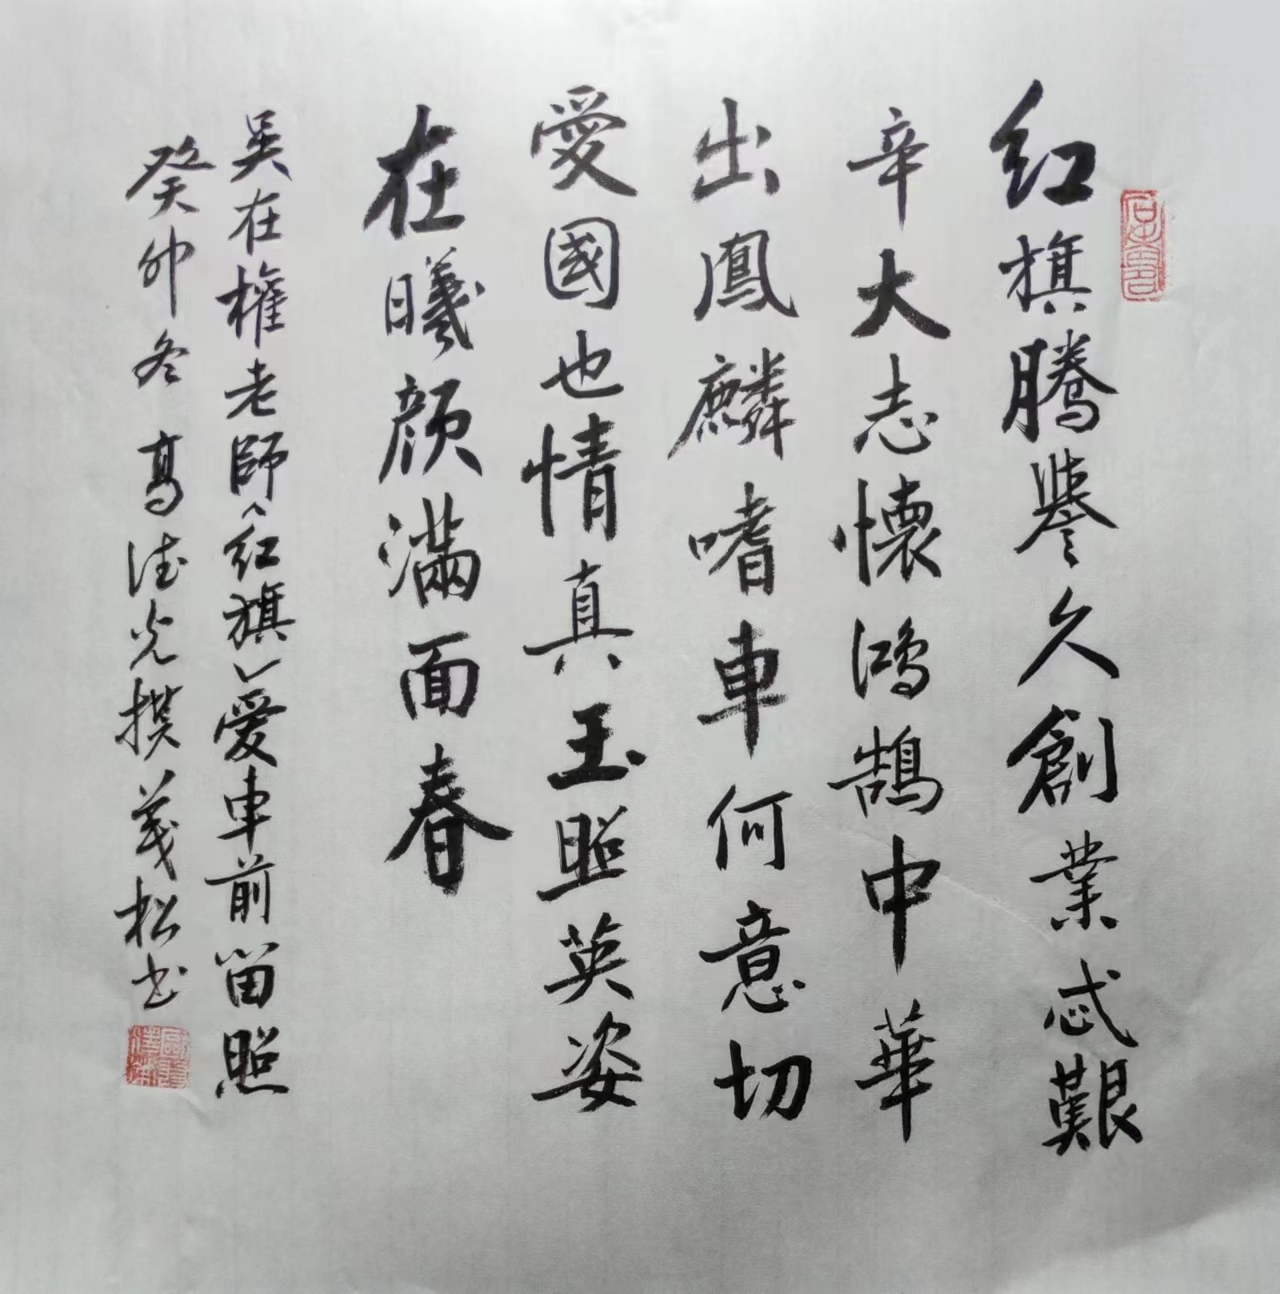 红旗腾誉久創業忒艱
辛大志懷鴻鵠中華
出鳳麟嗜車何意切
愛國也情真玉照英姿
在曦颜滿面春
吳在權老師《红旗》愛車前留照
癸卯冬 高德光撰 義松书